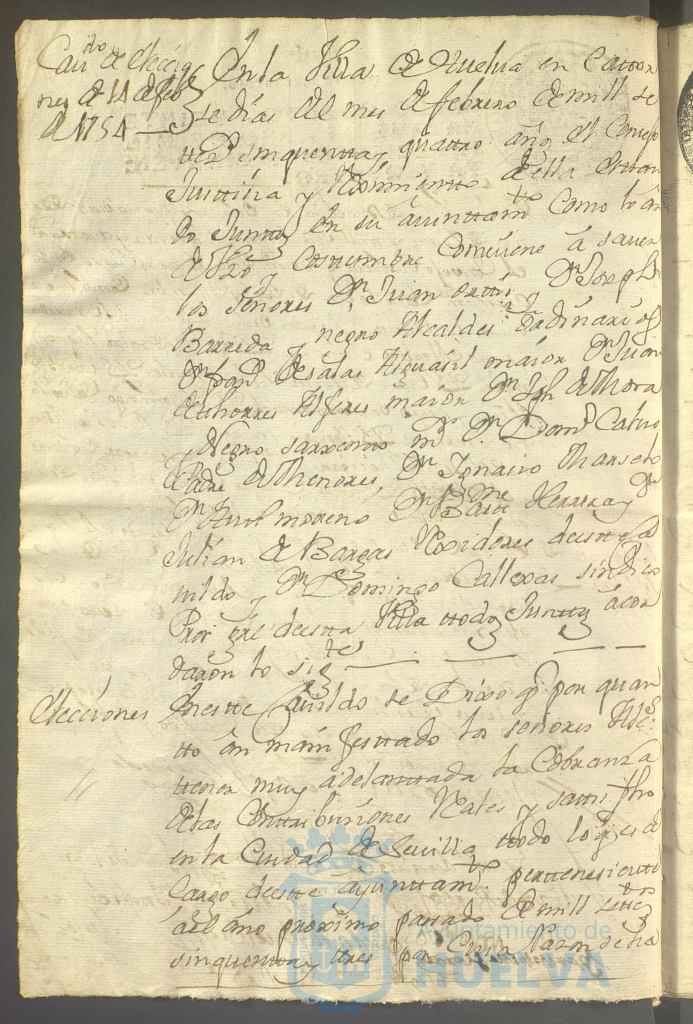 Cavdo de Elecció
nes de 14 de febo
de 1754
En la Villa de Huelva en Cator
se dias del mes de febrero de mill se
ttezs sinquenta y quattro años el Consejo
Justtisia y Reximientto de ella esttan
do Junttos en su ayunttamtto Como lo an
de uso y Costtumbre Combiene a saver
los señores Dn Juan orttis y Dn Joseph
Barreda y negro Alcaldes ordinarios
Dn de salas Alguasil maior Dn Juan
de thorres Alferes maior Dn Jph de Mora
y Negro Dn Calvo
Padre de Menores, Dn Ignasio
Dn moreno Dn Barme Herrera y Dn
Julian de Bargas Rexidores de estte Ca
vildo y Dn Domingo Callexas sindico
Pror de estta Villa ttodos Junttos acor
daron lo sigte
Elecciones
En estte Cavildo se Dixo qe por quan
tto an manifesttado los señores Aldes
ttener muy adelanttada la Cobranza
de las Conttribusiones Rales y sattisfho
en la Ciudad de Sevilla ttodo lo qe es de
Cargo de estte ayunttamtto perttenesientte
a el año proximo pasado de mill settezs
sinquentta y ttres por Cuia Razon se ha
Ayuntamiento de
HUELVA